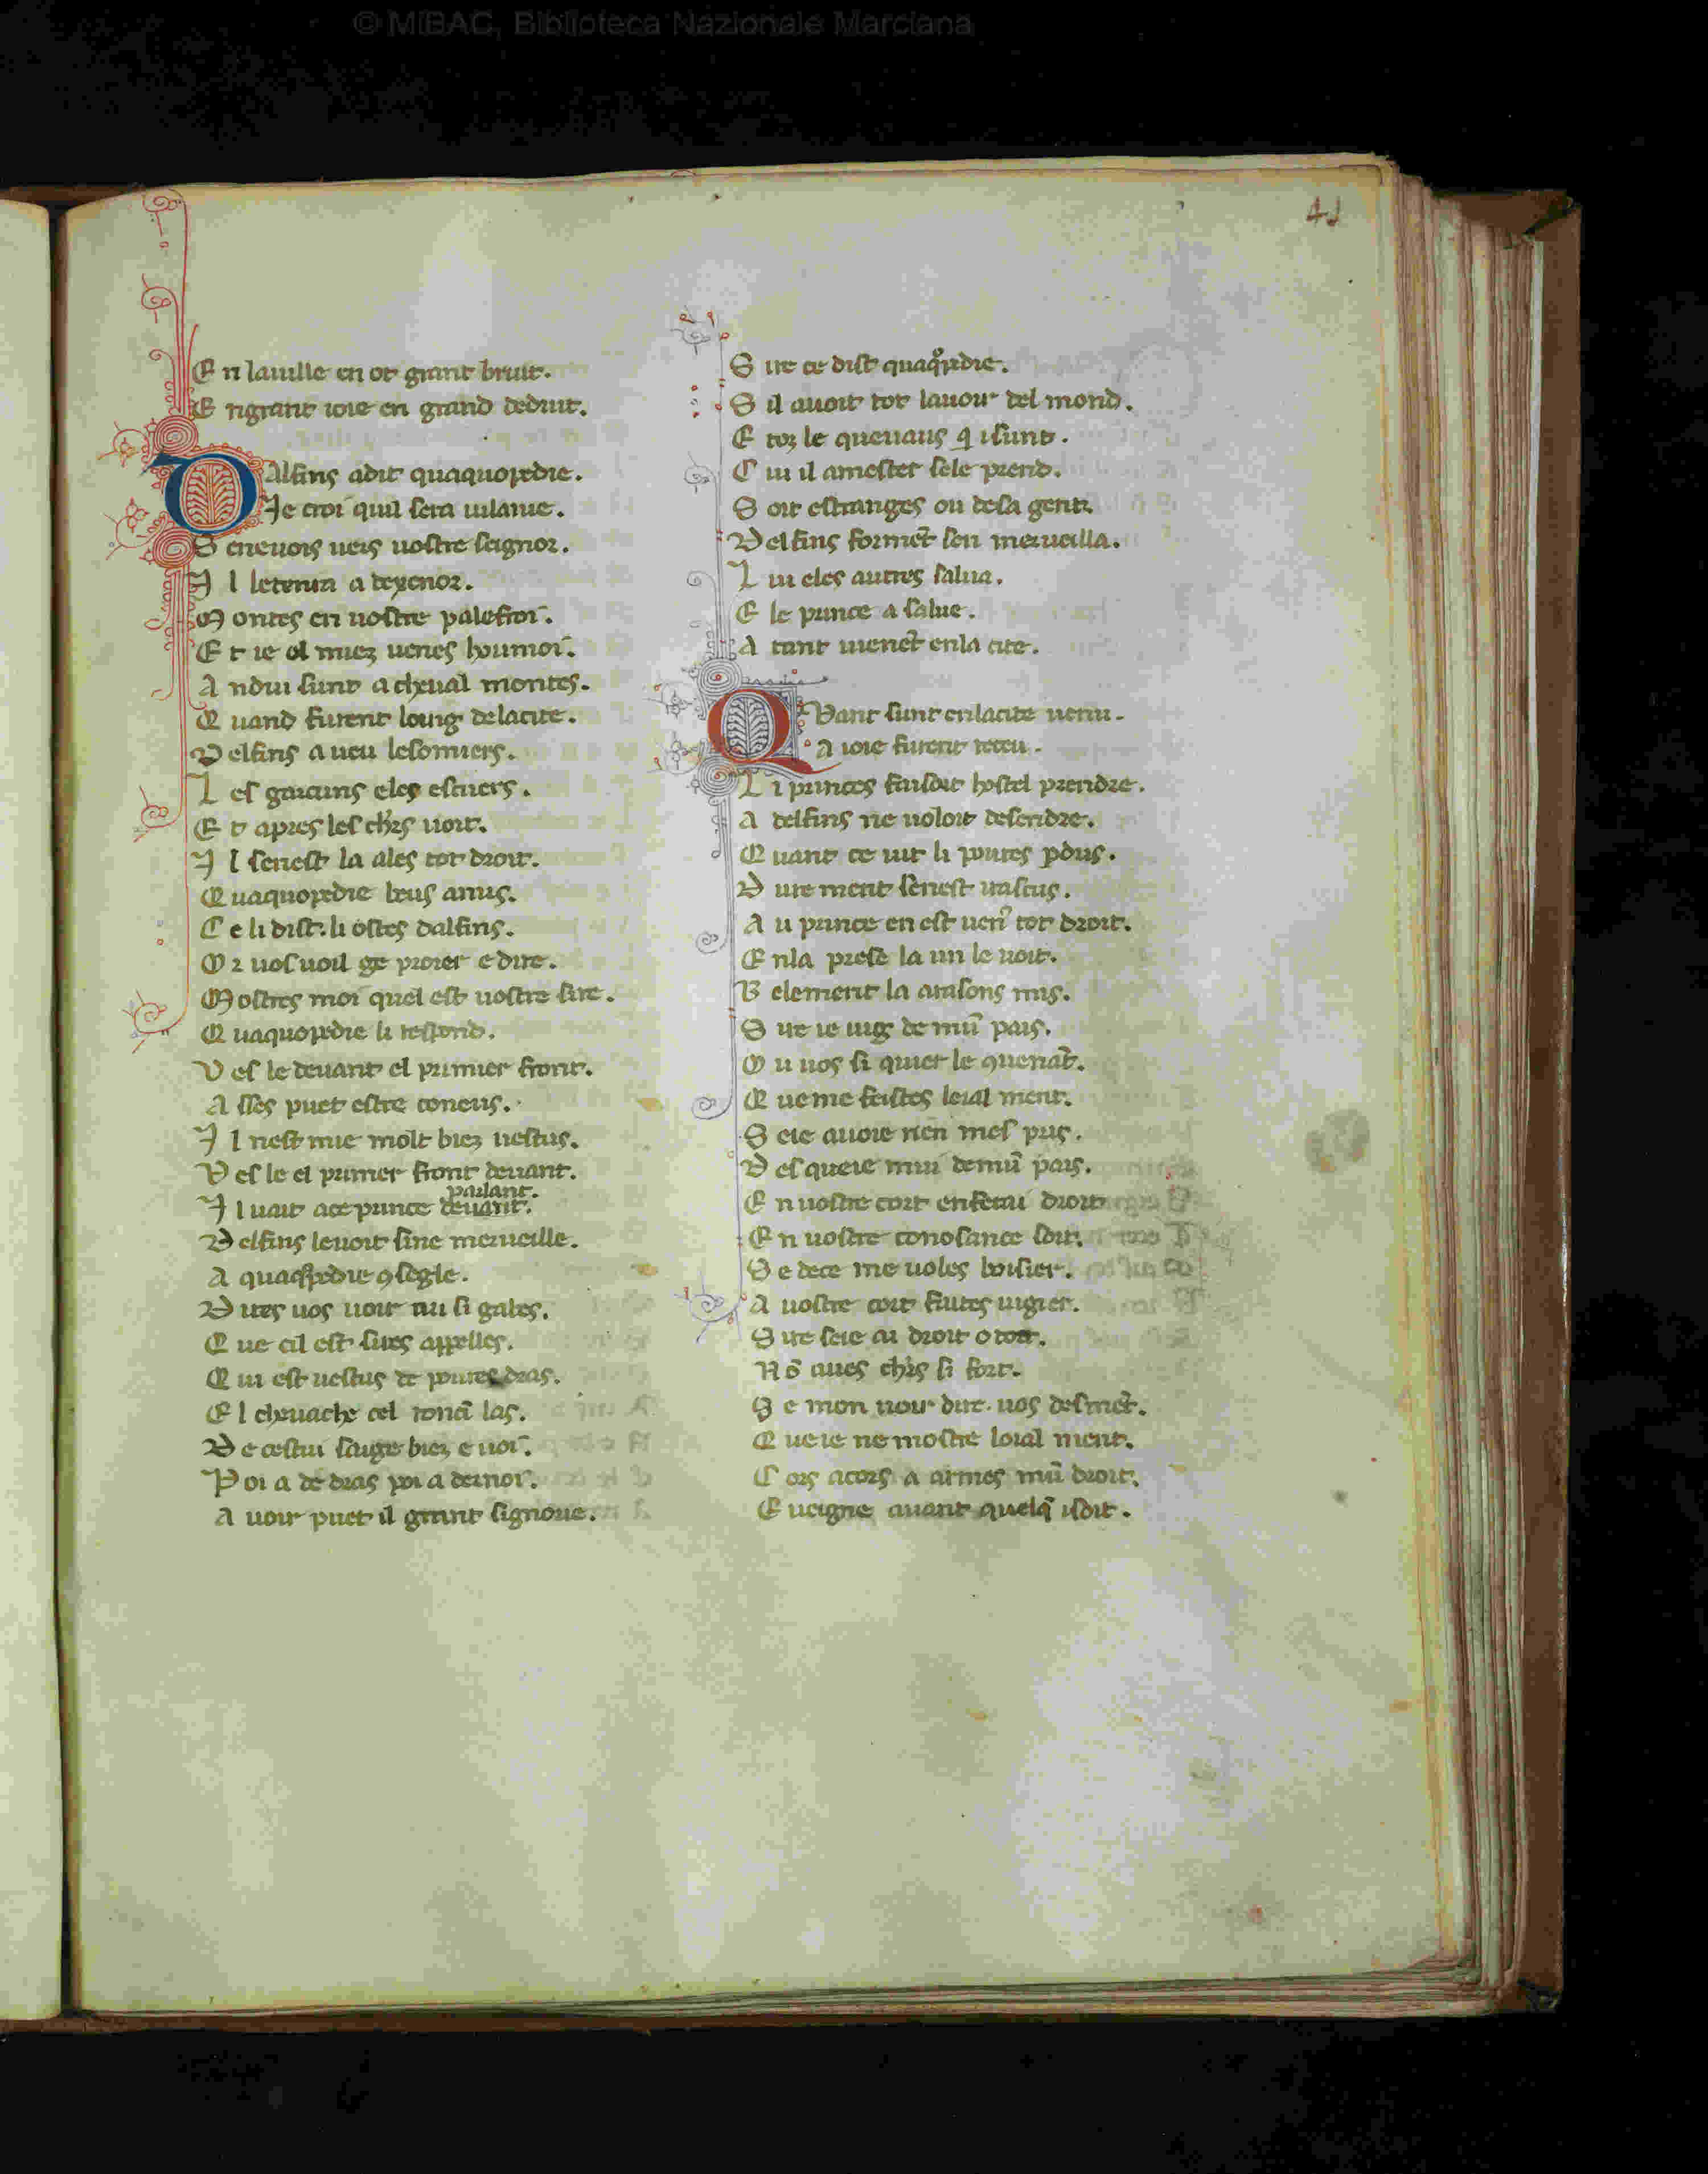 © MiBAC, Biblioteca Nazionale Marciana
41
E n lauille en ot grant bruit.
E ngrant ioie en grand deduit.
Dalfins adit quaquopedie.
Je croi quil sera uilanie.
S eneuois ueis uostre seignor.
I l letenra a dexenor.
M ontes en uostre palefroi.
E t ie el miez uenes houmoi.
A ndui sunt a cheual montes.
Q uand furent loing delacite.
D elfins a ueu lesomiers.
L es garcuns eles escuers.
E t apres les chrs uoit.
I l senest la ales tot droit.
Q uaquopedie beus amis.
C e li dist. li ostes dalfins.
O r uos uoil ge proier e dire.
M ostres moi quel est uostre sire.
Q uaquopedie li respond.
V es le deuant el primier front.
A sses puet estre coneus.
I l nest mie molt biez uestus.
V es le el primer front deuant.
parlant.
I l uait ace prince deuant.
D elfins leuoit sine merueille.
A quaqopedie 9segle.
D ites uos uoir au si gabes.
Q ue cil est sires appelles.
Q ui est uestus de poures dras.
E l cheuache cel roncī las.
D e cestui saige biez e uoi.
P oi a de dras poi a dernoi.
A uoir puet il grant signorie.
S ire ce dist quaqopedie.
S il auoit tot lauoir del mond.
E toz le queuaus q isunt.
C ui il amester sele prend.
S oit estranges ou desa gent.
D elfins formēt sen merueilla.
L ui eles autres salua.
E le prince a salue.
A tant uienēt enla cite.
Quant sunt enlacite uenu.
A ioie furent receu.
L i princes faisoit hostel prendre.
A delfins ne uoloit desendre.
Q uant ce uit li poures pdus.
D ure ment senest irascus.
A u prince en est uenˀ tot droit.
E nla prese la un le uoit.
B element la araisons mis.
S ire ie uig de mū pais.
O u uos si quier le 9uenāt.
Q ueme feistes leial ment.
S eie auoie rien mes pris.
D esqueie mui demū pais.
E n uostre cort enferai droit
E n uostre conosance soit.
S e dece me uoles boisier.
A uostre cort faites iugier.
S ire seie ai droit o tort.
N ō aues chrs si fort.
S e mon uoir dire uos desmēt.
Q ueie ne mostre loial ment.
C ors acors a armes mū droit.
E ueigne auant quelq isoit.